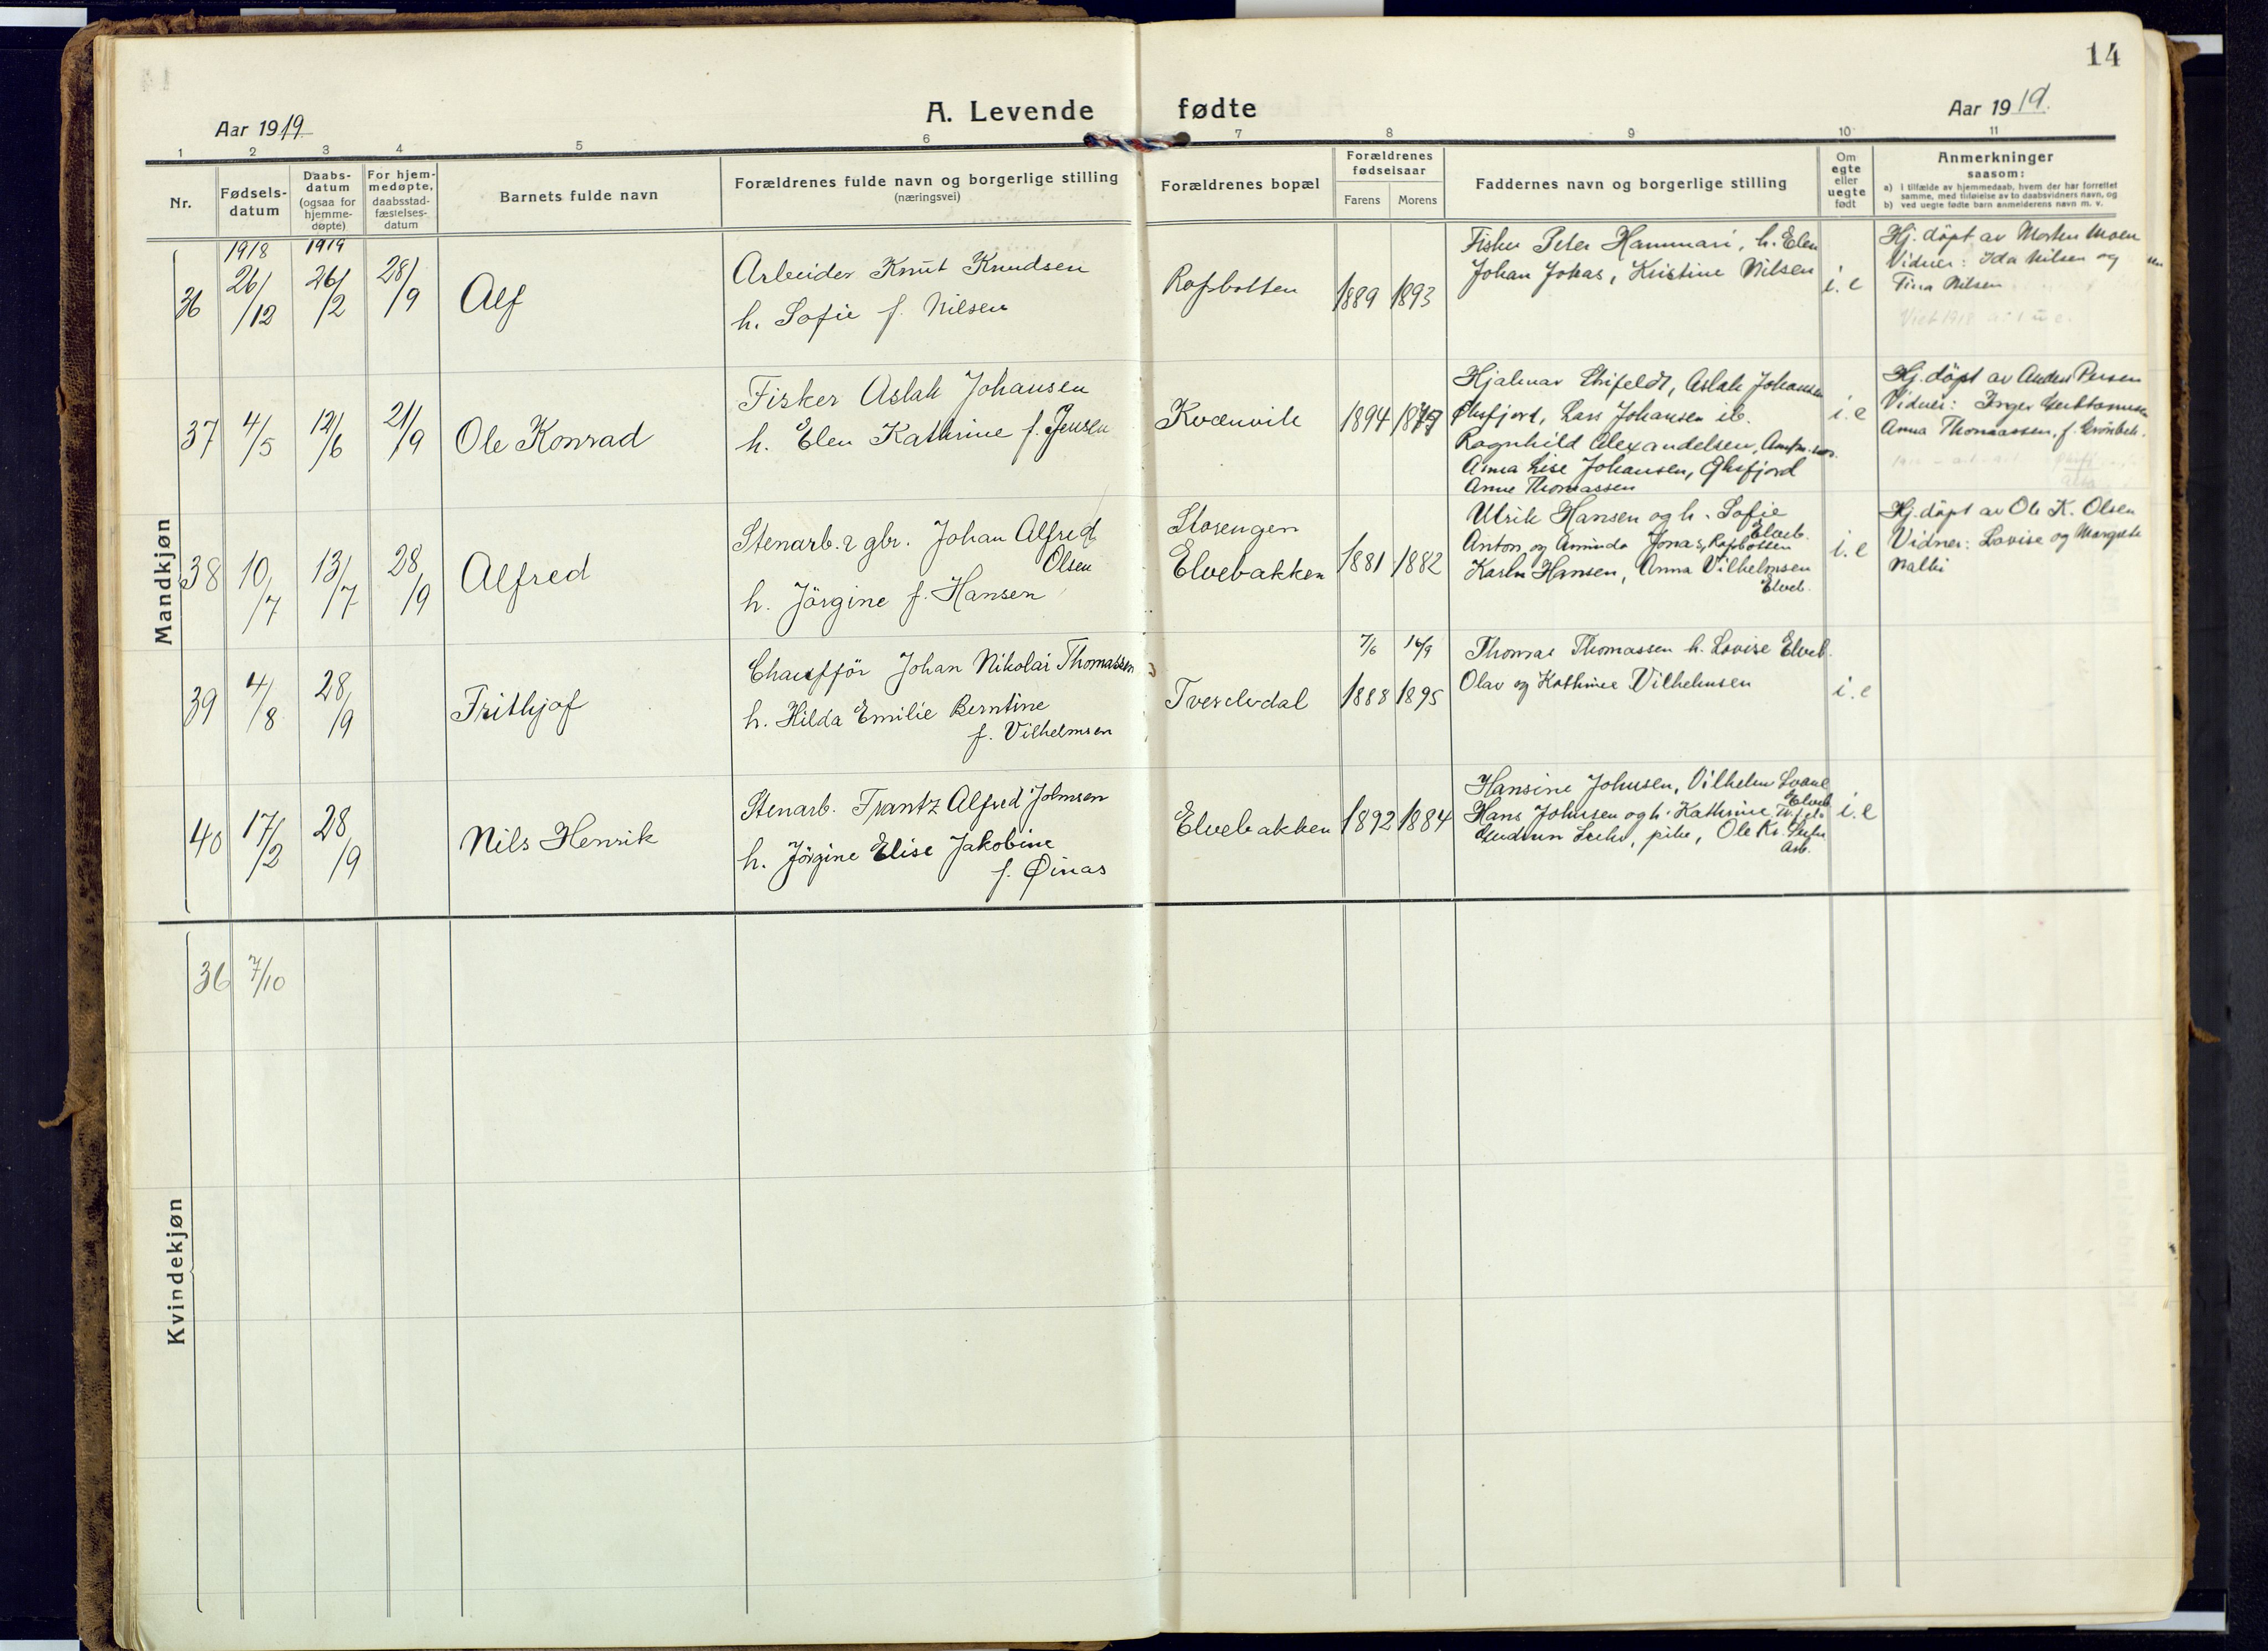 14
Aar 1919
A. Levende fødte
Aar 1919.
1 2 3 4 5 6 7 8 9 10 11
Nr.
Fødsels-
datum
Daabs-
datum
(ogsaa for
hjemme-
døpte)
For hjem-
medøpte,
daabsstad-
fæstelses-
datum
Barnets fulde navn
Forældrenes fulde navn og borgerlige stilling
(næringsvei)
Forældrenes bopæl
Forældrenes
fødselsaar
Farens Morens
Faddernes navn og borgerlige stilling
Om
egte
eller
uegte
født
Anmerkninger
saasom:
a) i tilfælde av hjemmedaab, hvem der har forrettet
samme, med tilføielse av to daabsvidners navn, og
b) ved uegte fødte barn anmelderens navn m. v.
Mandkjøn
36
1918
26/12
1919
26/2
28/9
Alf
Arbeider Knut Knudsen
h. Sofie f. Nilsen
Rafsbotten
1889 1893
Fisker Peter Hammari, h. Elen
Johan Johas, Kristine Nilsen
i. e
Hj. döpt av Morten Moen
Vidner: Ida Nilsen og
Tina Nilsen
37
4/5
12/6
21/9
Ole Konrad
Fisker Aslak Johansen
h. Elen Kathrine f. Jensen
Kvænvik
1894
Hjalmar , Aslak Johansen
Lars Johansen ib.
Ragnhild Alexandelsen,
Anna Lise Johansen,
Anne Thomassen
i. e
Hj. döpt av Anders Persen
Vidner: Inger
Anna Thomassen, f.
38
10/7
13/7
28/9
Alfred
Stenarb. & gbr. Johan Alfred
Olsen
h. Jörgine f. Hansen
Storengen
Elvebakken
1881 1882
Ulrik Hansen og h. Sofie
Elveb.
Anton og Aminda Jonas, Rafsbotten
Hansen, Anna Vilhelmsen
Elveb.
i. e
Hj. döpt av Ole K. Olsen
Vidner: Lovise og Margrete
Nalli
39
4/8
28/9
Frithjof
Chaufför Johan Nikolai Thomassen
h. Hilda Emilie Berntine
f. Vilhelmsen
Tverelvdal
7/6 16/9
1888 1895
Thomas Thomassen h. Lovise Elveb.
Olav og Kathrine Vilhelmsen
i. e
40
17/2
28/9
Nils Henrik
Stenarb. Frantz Alfred Johnsen
h. Jörgine Elise Jakobine
f. Øinas
Elvebakken
1892 1884
Hansine Johnsen, Vilhelm
Elveb
Hans Johnsen og h. Kathrine
Gudrun , pike, Ole Kr.
Arb.
i. e
Kvindekjøn
36
7/10